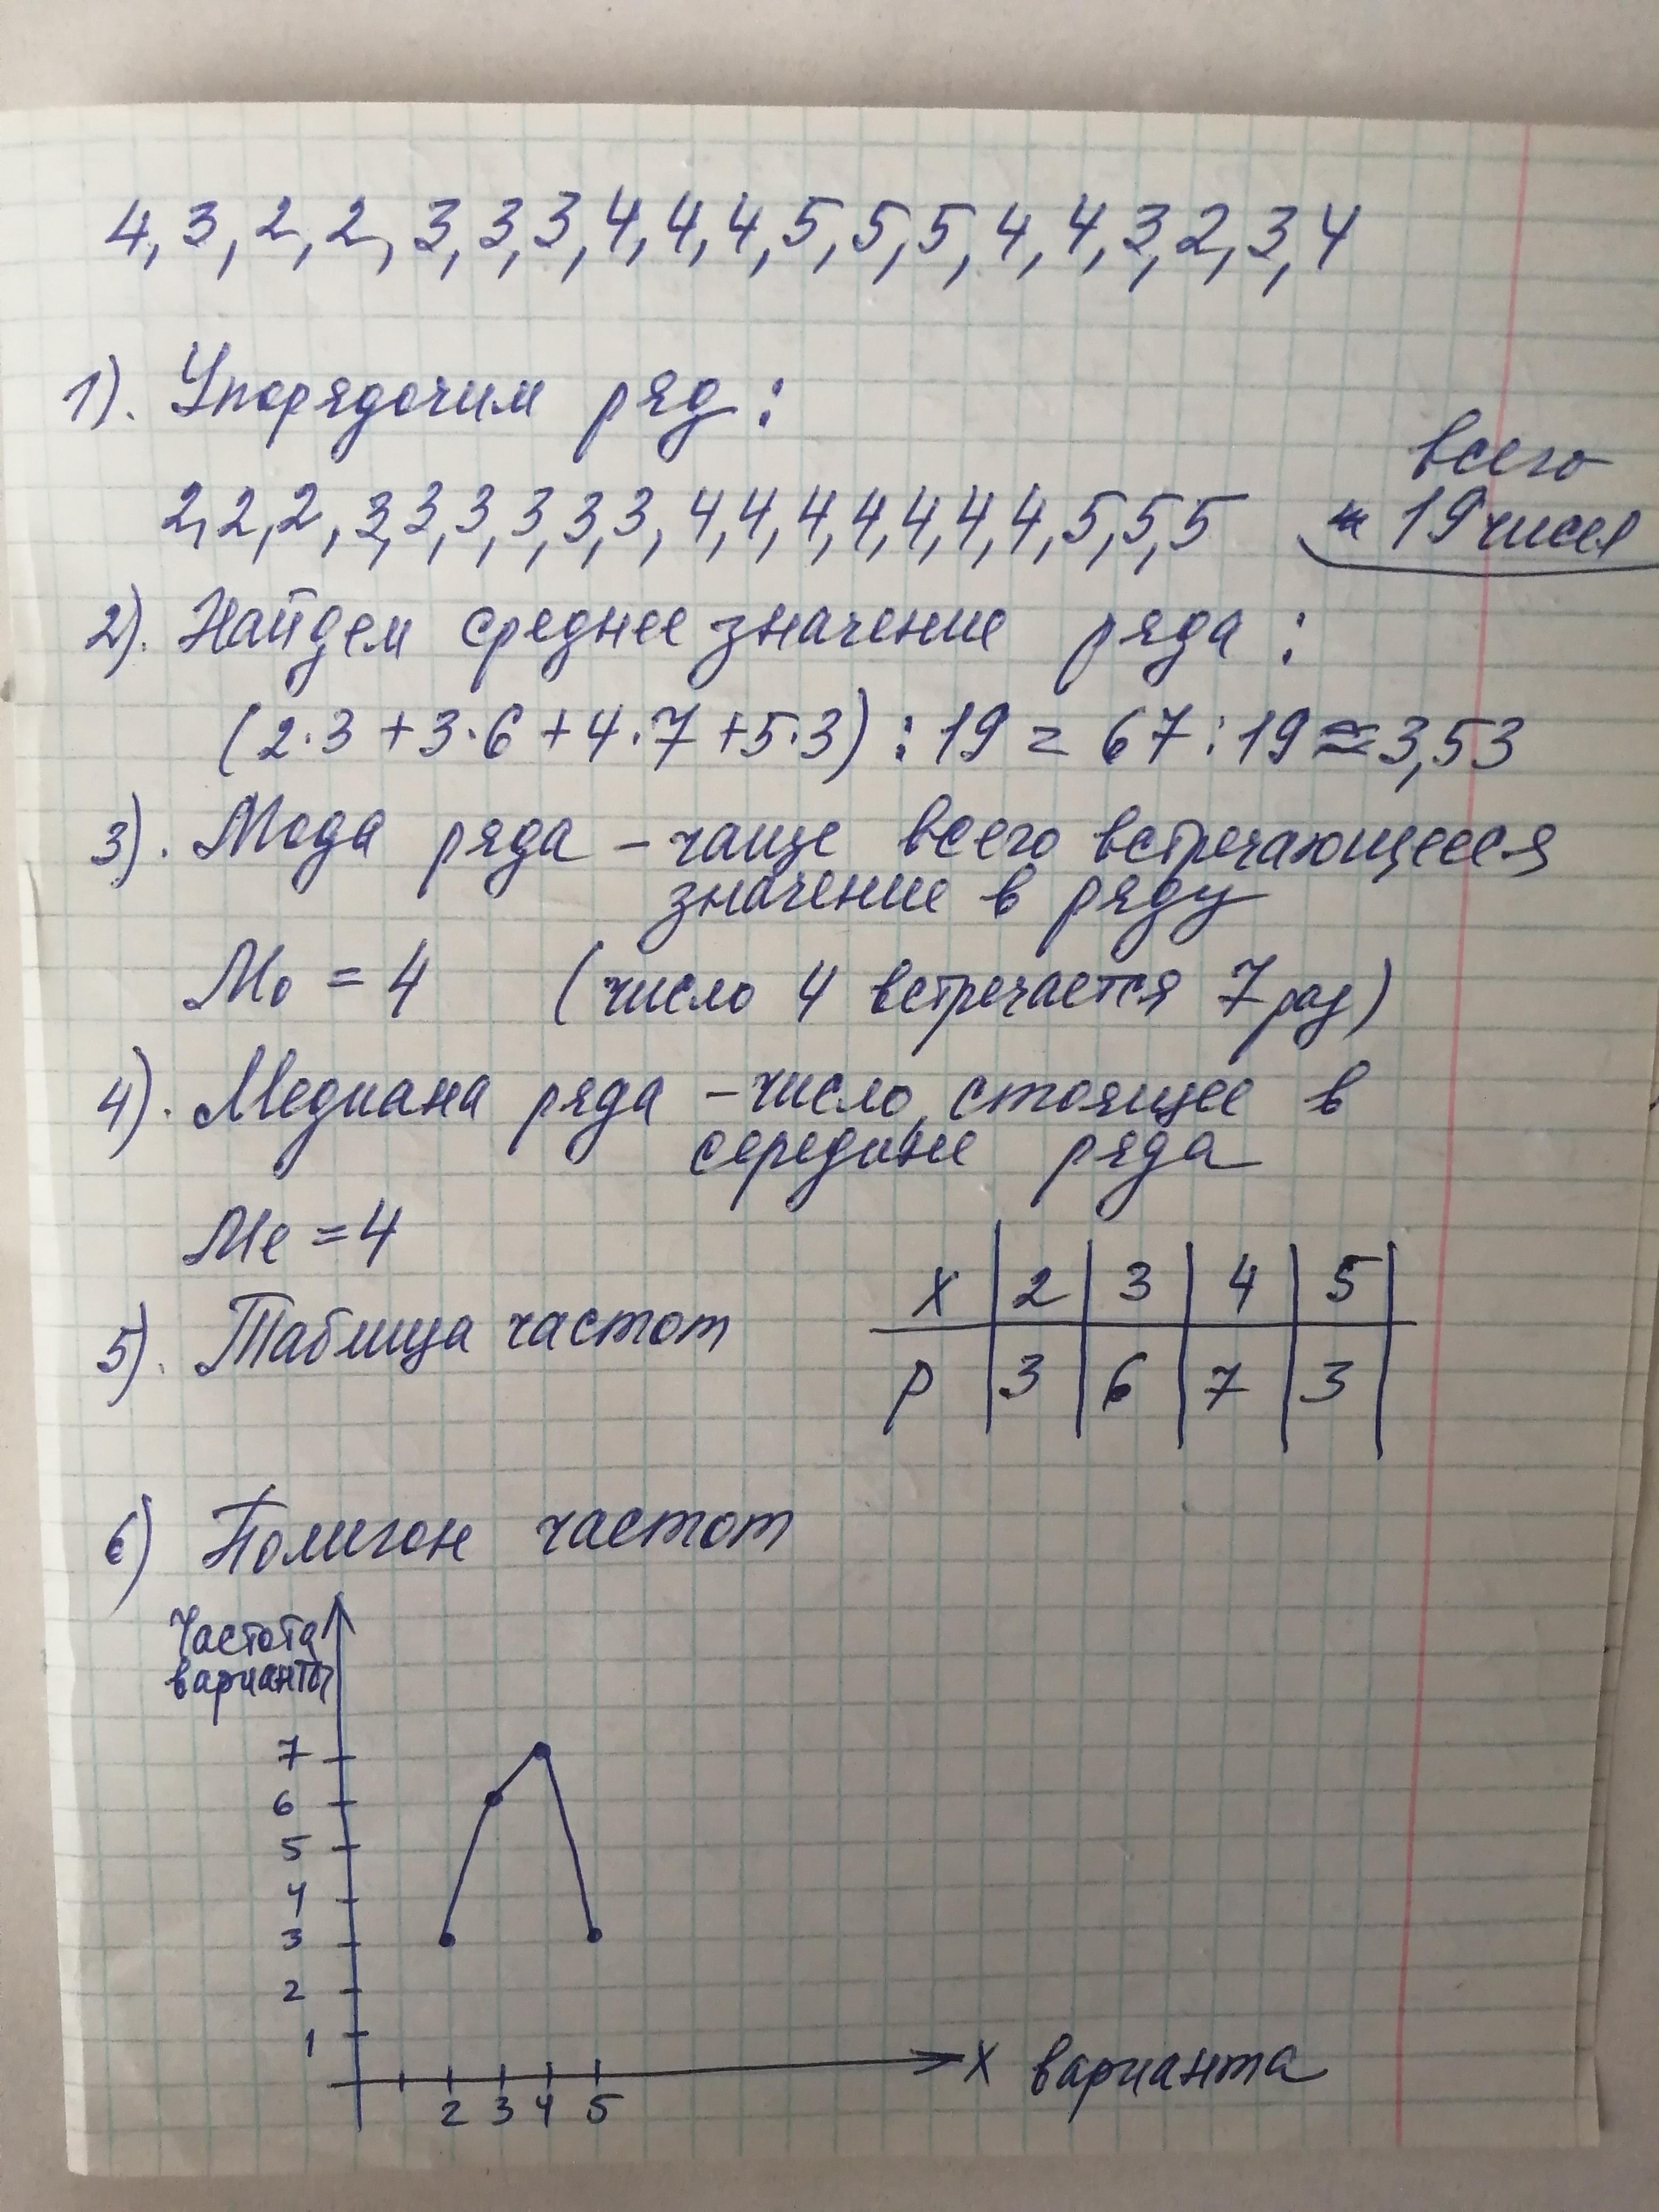 4, 3, 2, 2, 3, 3, 3, 4, 4, 4, 5, 5, 5, 4, 4, 3, 2, 3, 4
1). Упорядочим ряд:
всего
2, 2, 2, 3, 3, 3, 3, 3, 3, 4, 4, 4, 4, 4, 4, 4, 5, 5, 5 19 чисел
2). Найдем среднее значение ряда:
(2·3 + 3·6 + 4·7 + 5·3) : 19 = 67 : 19 ≈ 3,53
3). Мода ряда – чаще всего встречающееся
значение в ряду
Mo = 4 (число 4 встречается 7 раз)
4). Медиана ряда – число, стоящее в
середине ряда
Me = 4
x 2 3 4 5
5). Таблица частот
p 3 6 7 3
6) Полигон частот
Частота
варианты
7
6
5
4
3
2
1
x варианта
2 3 4 5